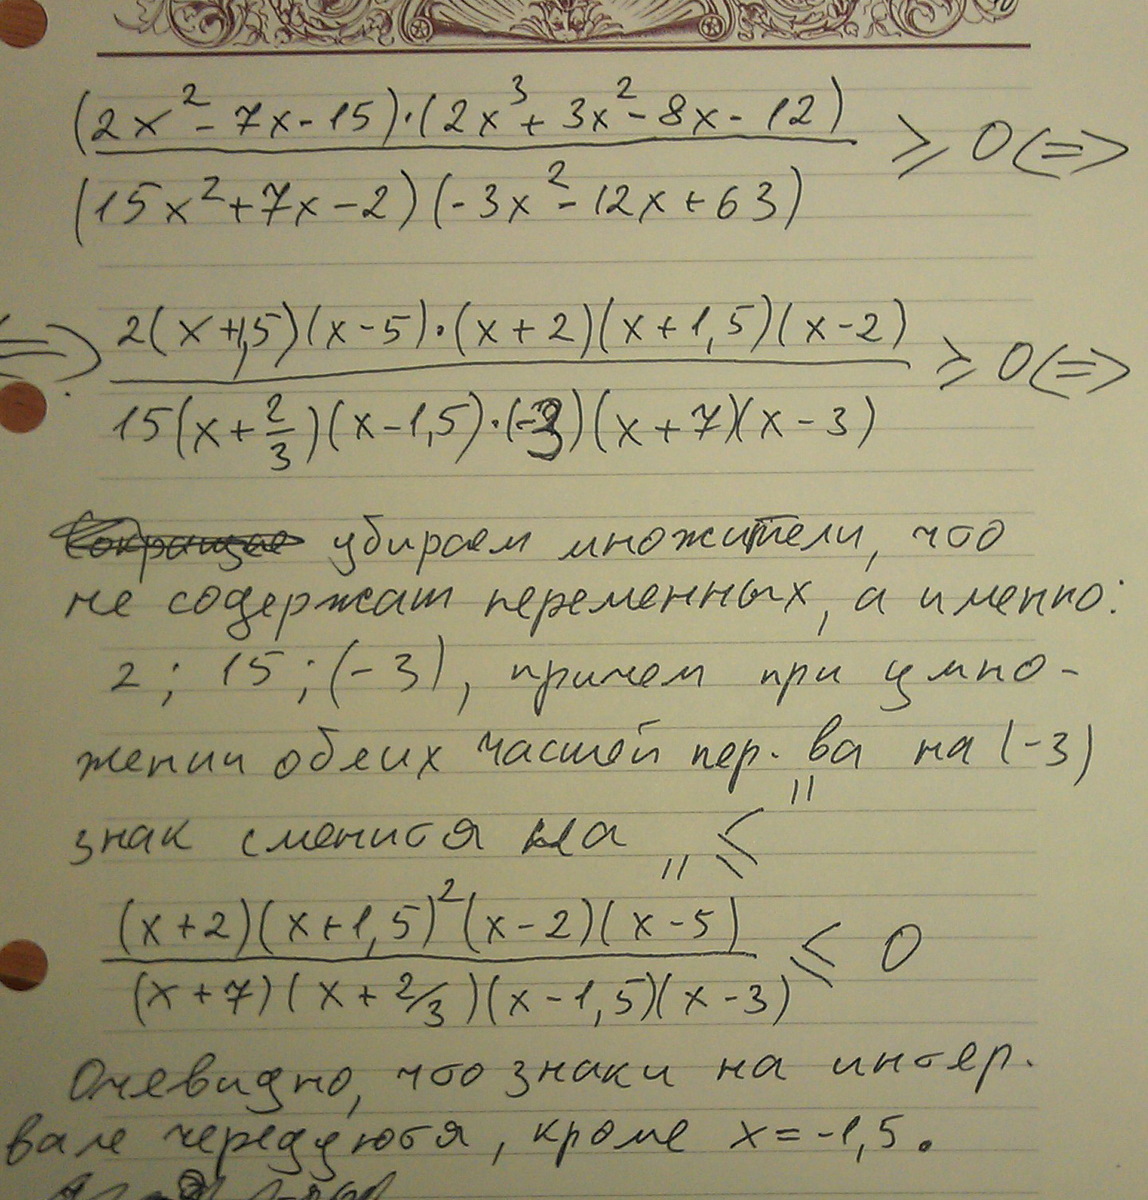 (2x² - 7x - 15)·(2x³ + 3x² - 8x - 12)
/ (15x² + 7x - 2)(-3x² - 12x + 63) ⩾ 0 <=>
<=> 2(x + 1,5)(x - 5)·(x + 2)(x + 1,5)(x - 2)
/ 15(x + 2/3)(x - 1,5)·(-3)(x + 7)(x - 3) ⩾ 0 <=>
убираем множители, что
не содержат переменных, а именно:
2; 15; (-3), причем при умно-
жении обеих частей нер-ва на (-3)
знак сменится на „⩽"
(x + 2)(x + 1,5)²(x - 2)(x - 5)
/ (x + 7)(x + 2/3)(x - 1,5)(x - 3) ⩽ 0
Очевидно, что знаки на интер-
вале чередуются, кроме x = -1,5.